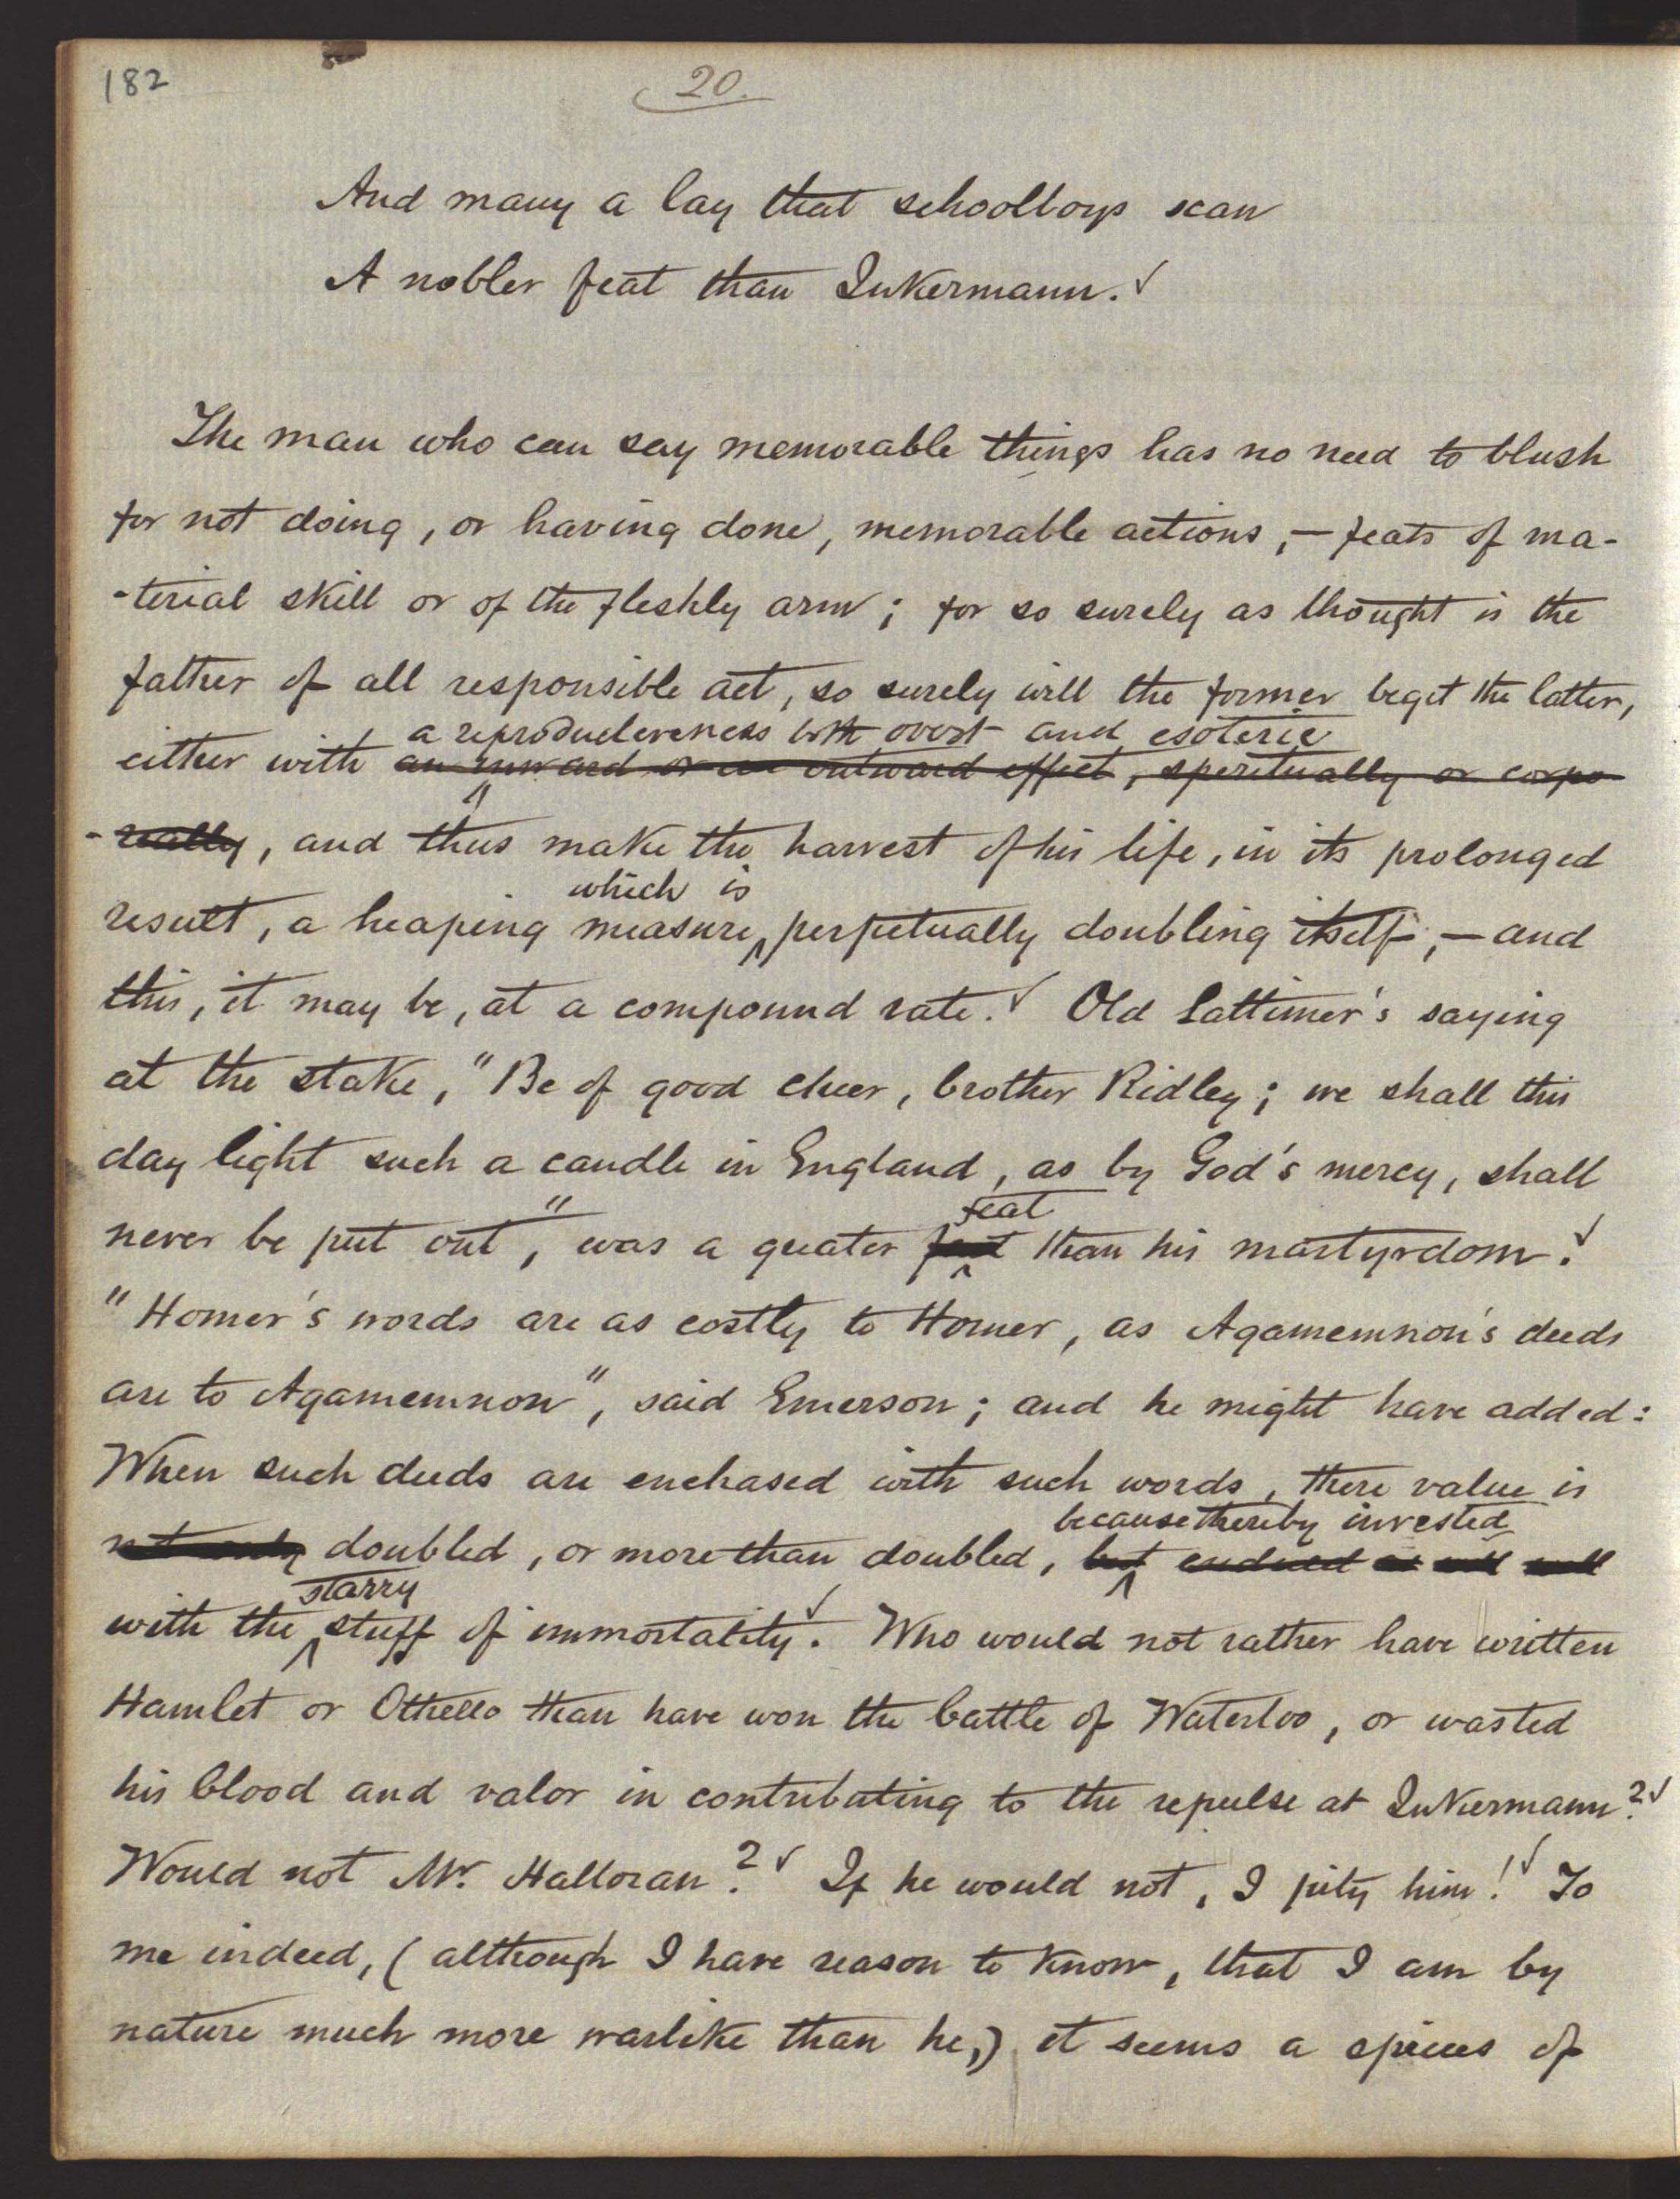 182
20.
And many a lay that schoolboys scan
A nobler feat than Inkermann.✓
The man who can say memorable things has no need to blush
for not doing, or having done, memorable actions,— feats of ma-
-terial skill or of the fleshly arm; for so surely as thought is the
father of all responsible act, so surely will the former beget the latter,
a reproductiveness both overt and esoteric
either with an inward or an outward effect, spiritually or corpo
-really, and thus make the harvest of his life, in its prolonged
which is
result, a heaping measure, perpetually doubling itself,— and
this, it may be, at a compound rate.✓ Old Lattimer's saying
at the stake, "Be of good cheer, brother Ridley; we shall this
day light such a candle in England, as by God's mercy, shall
feat
never be put out", was a greater than his martyrdom.✓
"Homer's words are as costly to Homer, as Agamemnon's deeds
are to Agamemnon", said Emerson; and he might have added:
When such deeds are enchased with such words, there value is
because thereby invested
not only doubled, or more than doubled, but endued as well
starry
with the stuff of immortality.✓ Who would not rather have written
Hamlet or Othello than have won the battle of Waterloo, or wasted
his blood and valor in contributing to the repulse at Inkermann?✓
Would not Mr. Halloran?✓ If he would not, I pity him!✓ To
me indeed, (although I have reason to know, that I am by
nature much more warlike than he,) it seems a spieces of